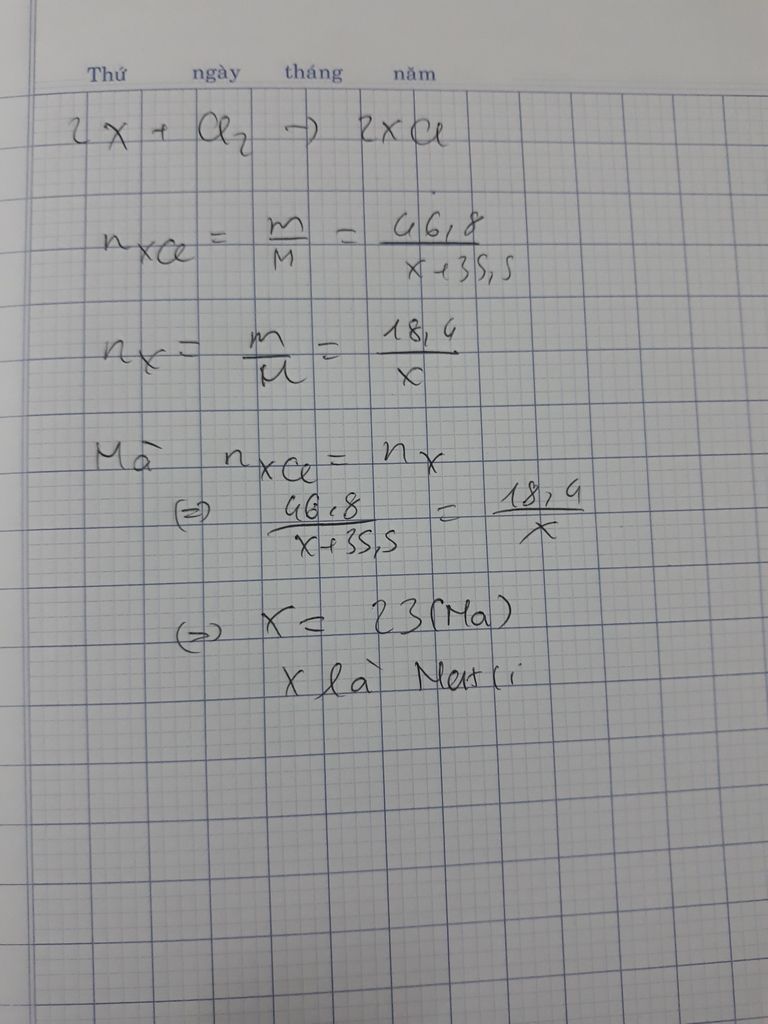 Thứ ngày tháng năm
2X + Cl2 → 2XCl
nXCl = m/M = 46,8/X+35,5
nX = m/M = 18,4/X
Mà nXCl = nX
(=) 46,8/X+35,5 = 18,4/X
(=) X = 23(Na)
X là Natri